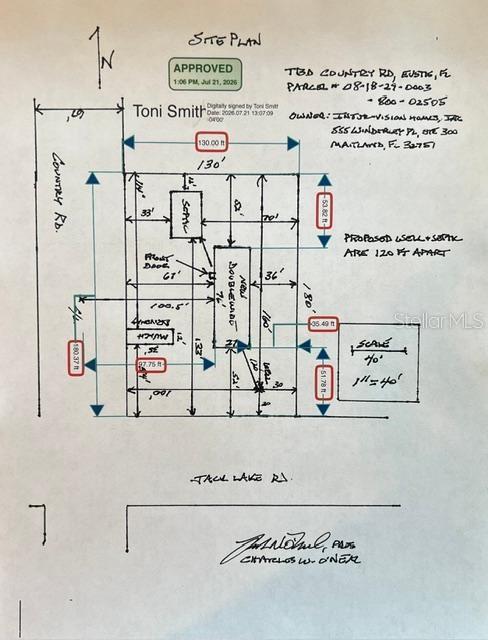 SITE PLAN
N
APPROVED
1:06 PM, Jul 21, 2026
Toni Smith
Digitally signed by Toni Smith
Date: 2026.07.21 13:07:09
-04'00'
TBD COUNTRY RD, EUSTIS, FL
PARCEL # 08-18-27-0003
- 800-02505
OWNER:
555 WINDERLEY PL, STE 300
MAITLAND, FL 32751
67'
130.00 ft
130'
COUNTRY RD.
SEPTIC
33'
70'
53.82 ft
PROPOSED WELL + SEPTIC
ARE 120 FT APART
FRONT
DOOR
67'
NEW
DOUBLEWIDE
76'
36'
180'
100.5'
160'
180.37 ft
35.49 ft
StellarMLS
SCALE
40'
1" = 40'
DRIVEWAY
MULCH
12'
35'
133'
27'
97.75 ft
120
WELL
51.78 ft
100'
30
JACK LAKE RD.
PRES
CHARLES W. O'NEAL